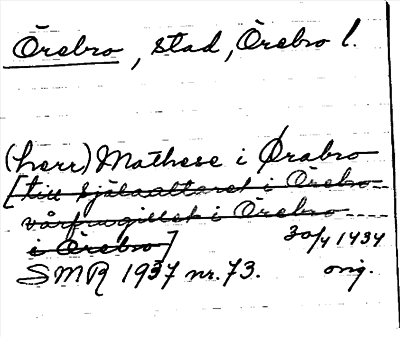 Örebro, stad, Örebro l.
(herr) Mathese i Ørabro
[till själaaltaret i Örebro
vårfrugillet i Örebro
i Örebro]
30/4 1434
SMR 1937 nr. 73. orig.